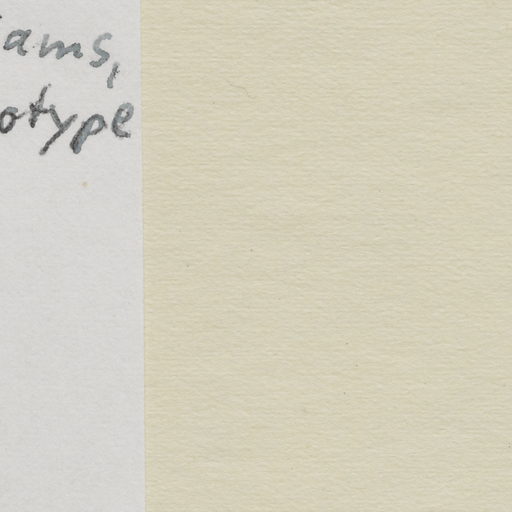 ams,
otype